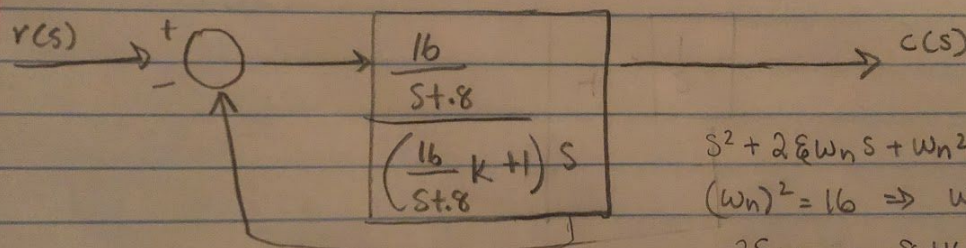 r(s) + 16 c(s)
− s+.8
(16/s+.8 k +1) s
s² + 2ξωₙs + ωₙ²
(ωₙ)² = 16 ⇒ ω